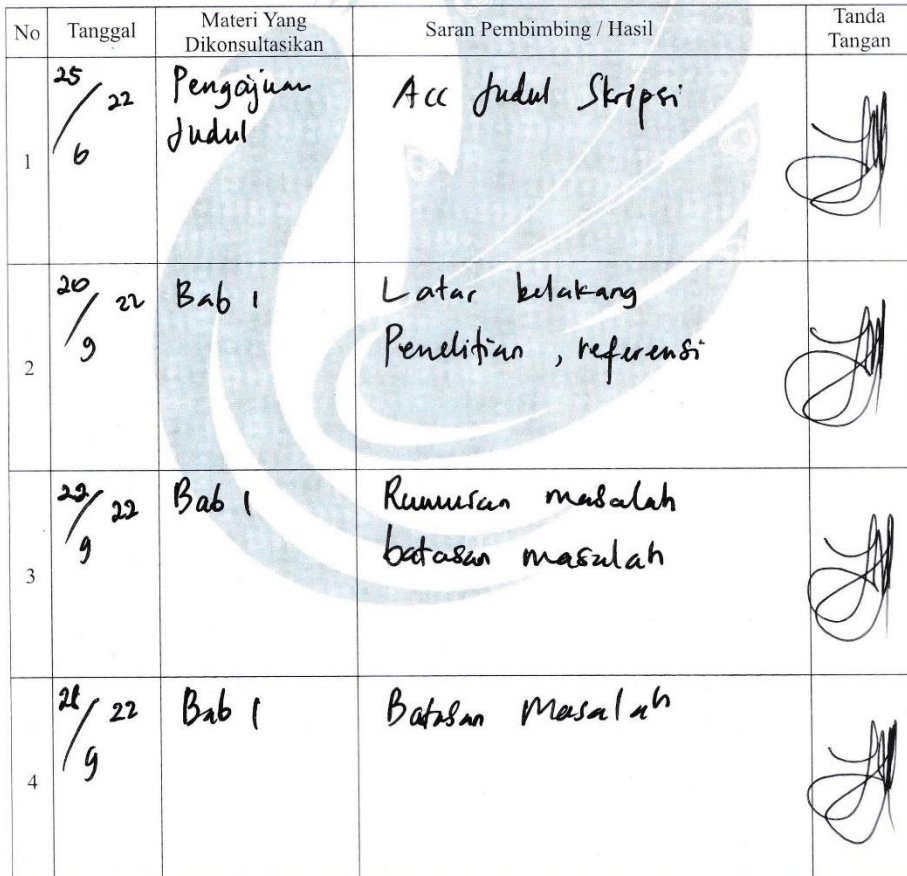 No
Tanggal
Materi Yang
Dikonsultasikan
Saran Pembimbing / Hasil
Tanda
Tangan
1
25/6 22
Pengajuan
Judul
Acc Judul Skripsi
2
20/9 22
Bab 1
Latar belakang
Penelitian, referensi
3
22/9 22
Bab 1
Rumusan masalah
batasan masalah
4
22
9
Bab 1
Batasan Masalah